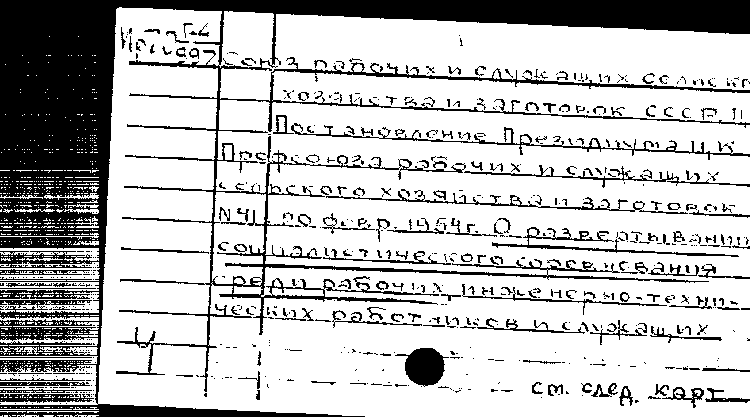 Г-2
997
Союз рабочих и служащих сельског
хозяйства и заготовок СССР. Ц
Постановление Президиума Ц.К.
Профсоюза рабочих и служащих
сельского хозяйства и заготовок
N41. 20 февр. 1954г. О развертывании
социалистического соревнования
среди рабочих, инженерно-техни-
ческих работников и служащих
Ч
см. след. карт